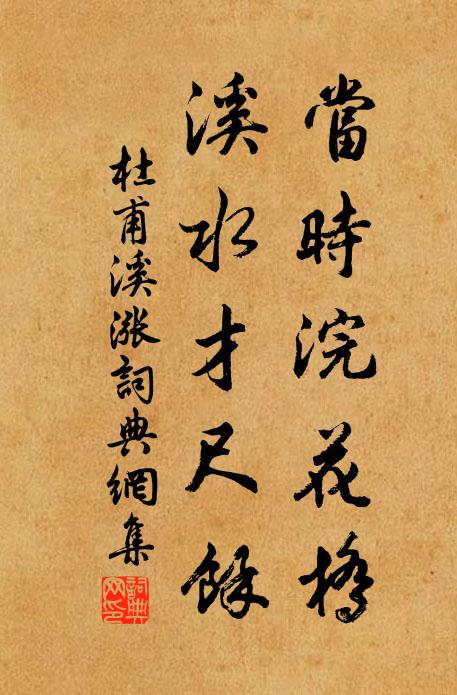 當時浣花橋
溪水才尺餘
杜甫溪漲詞典網集
詞典网印